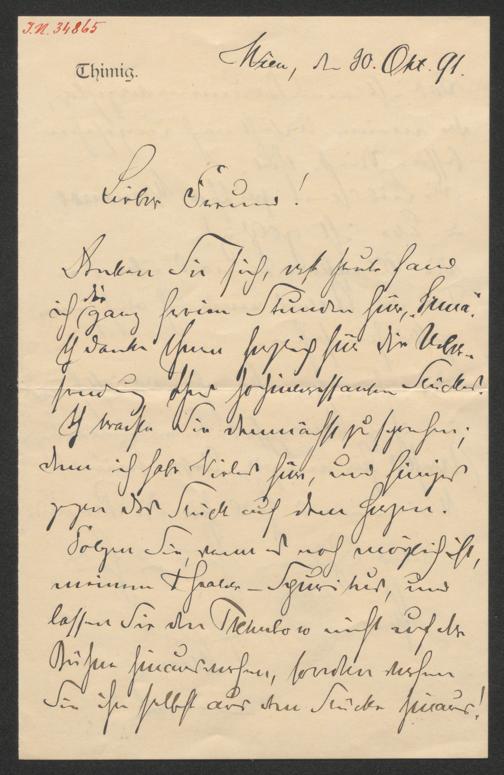 I.N. 34865
Thimig.
Wien, den 30. Okt. 91.
Lieber Freund!
Denken Sie sich, erst heute fand
ich die ganz freien Stunden für „Irma“.
Ich danke Ihnen herzlich für die Ueber-
sendung Ihres hochinteressanten Stückes.
Ich trachte Sie demnächst zu sprechen;
denn ich habe Vieles für, und Einiges
gegen das Stück auf dem Herzen.
Folgen Sie, wenn es noch möglich ist,
meinem Theater-Spiritus, und
lassen Sie den Tschulow nicht auf der
Bühne hinauswerfen, sondern werfen
Sie ihn selbst aus dem Stücke hinaus!